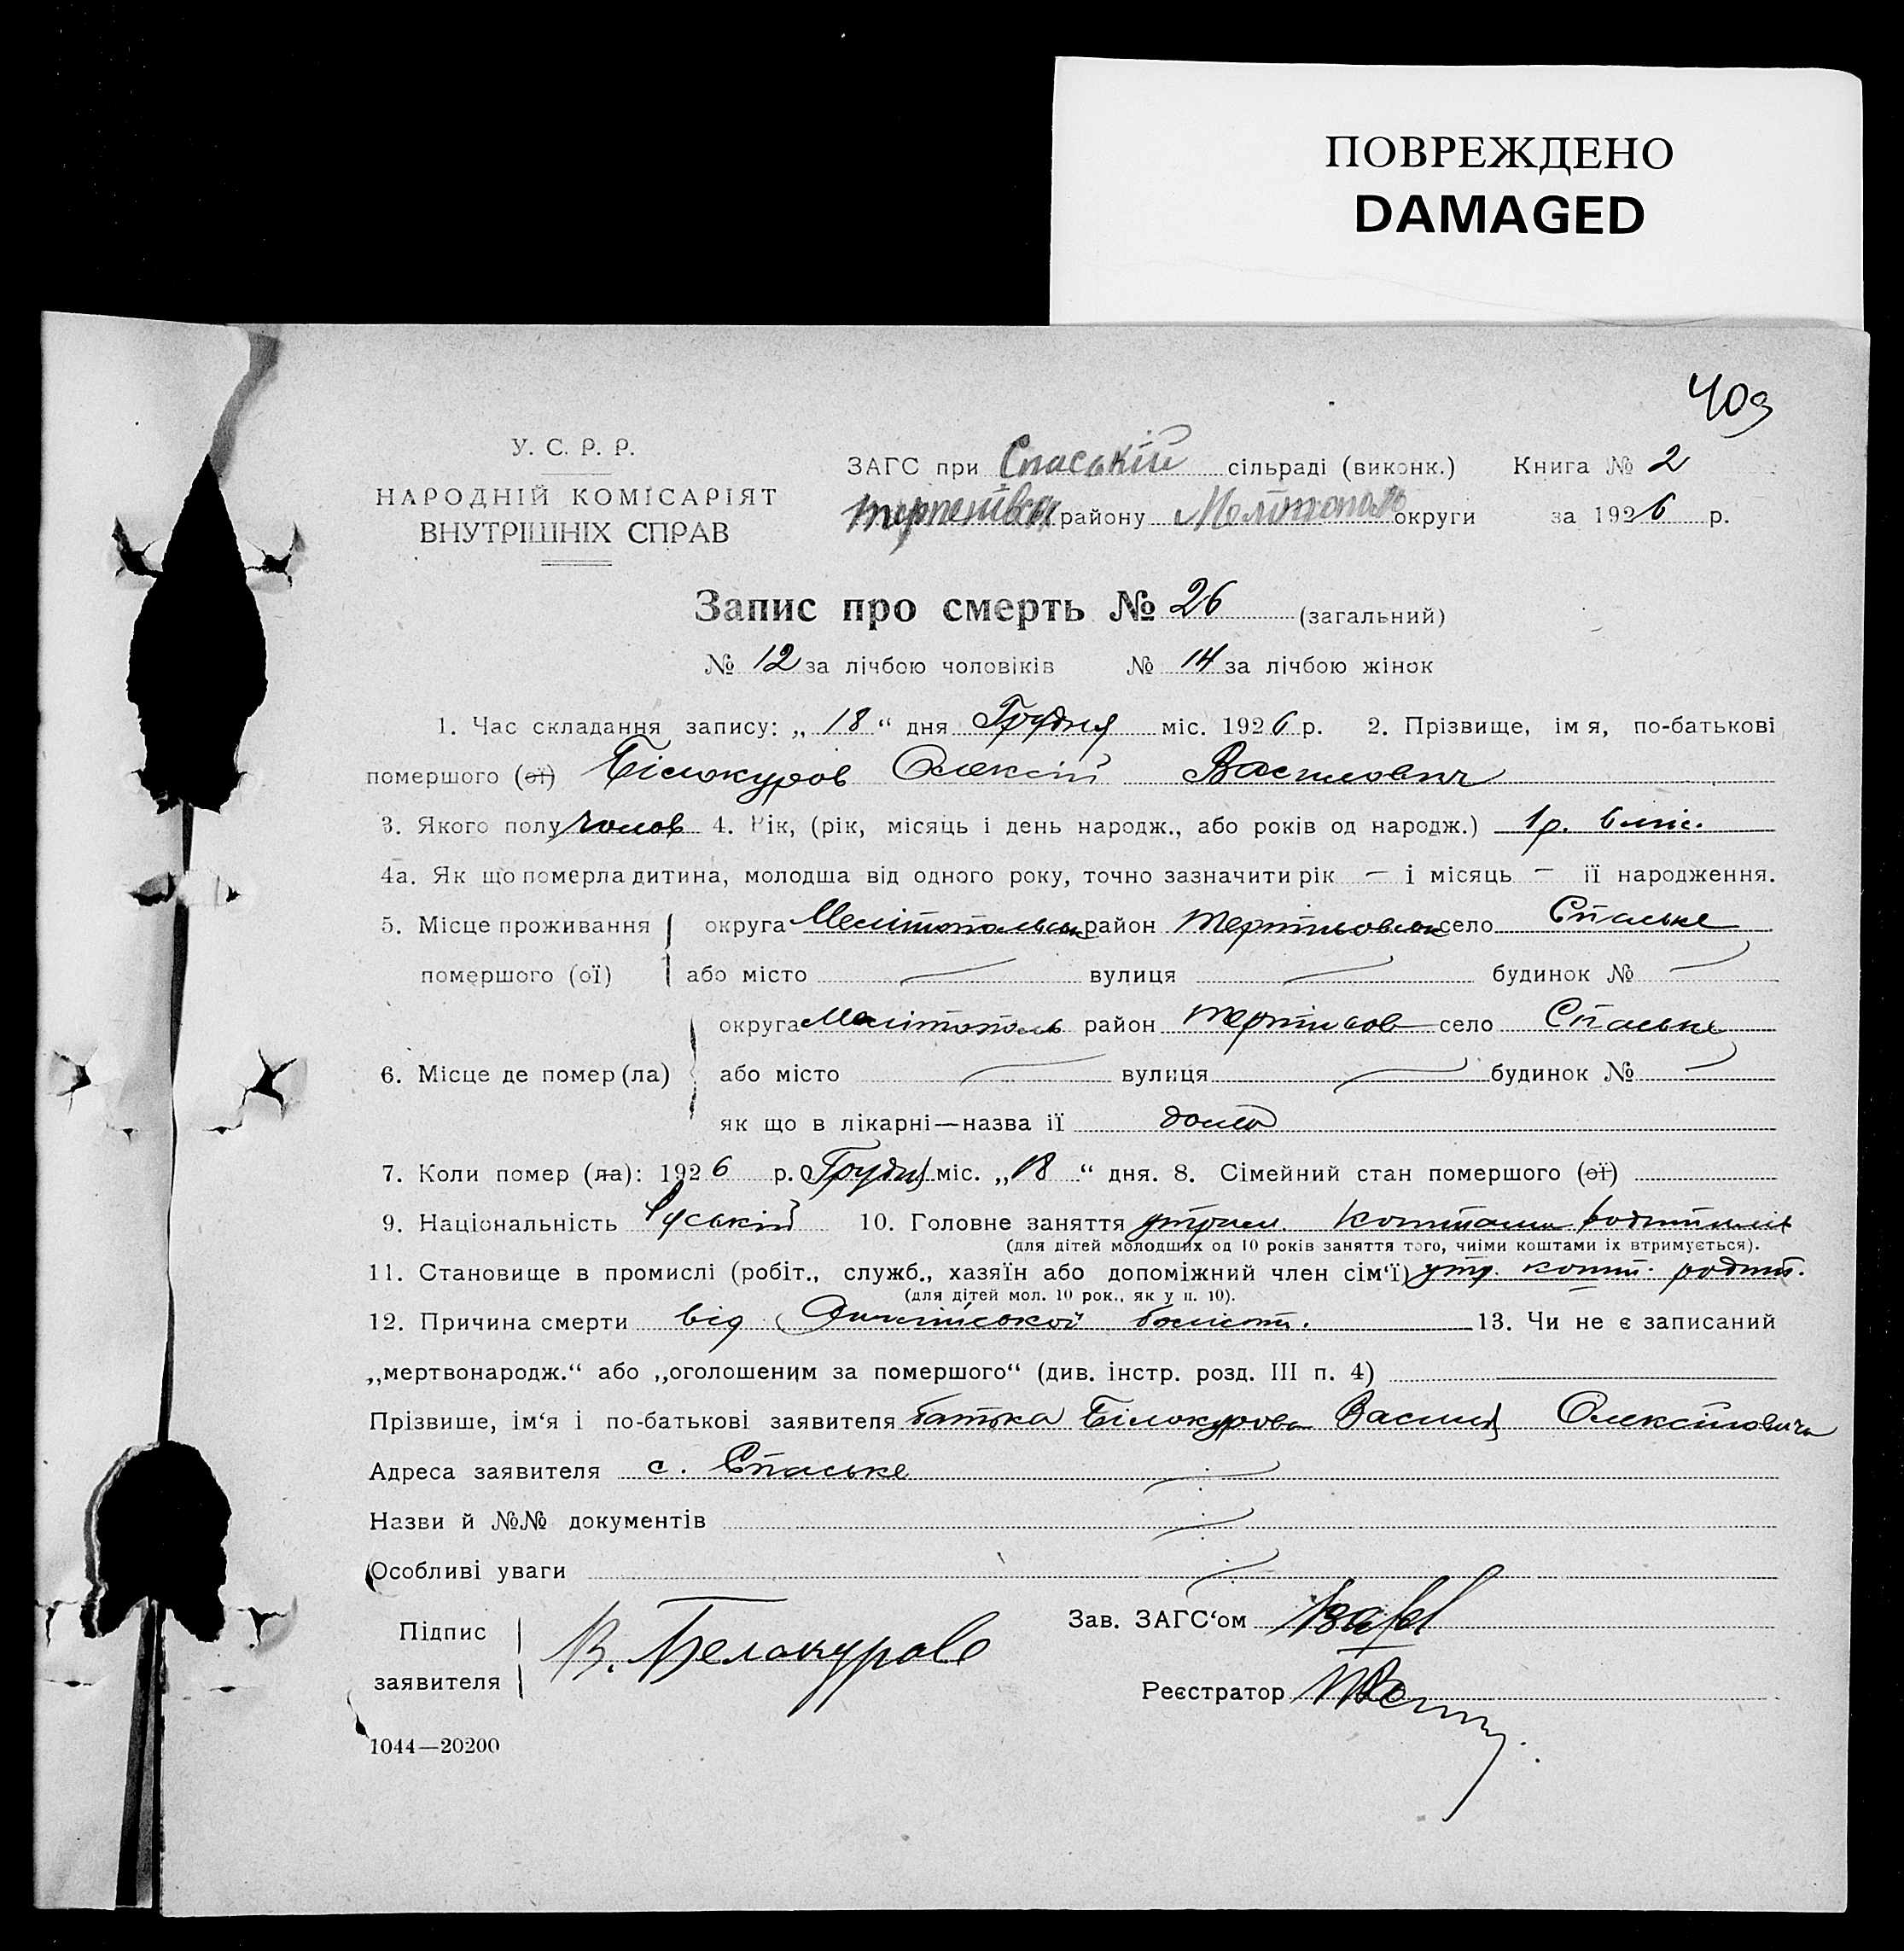 ПОВРЕЖДЕНО
DAMAGED
409
У. С. Р. Р.
НАРОДНІЙ КОМІСАРІЯТ
ВНУТРІШНІХ СПРАВ
ЗАГС при Спаській сільраді (виконк.) Книга № 2
району Мелітополь округи за 1926 р.
Запис про смерть № 26 (загальний)
№ 12 за лічбою чоловіків № 14 за лічбою жінок
1. Час складання запису: „ 18 “ дня Грудня міс. 1926 р. 2. Прізвище, імя, по-батькові
помершого (ої) Білокуров Олексій Василович
3. Якого полу чолов 4. Рік, (рік, місяць і день народж., або років од народж.) 1р. 6 міс.
4а. Як що померла дитина, молодша від одного року, точно зазначити рік — і місяць — її народження.
5. Місце проживання округа Мелітопольськ район село Спаське
помершого (ої) або місто вулиця будинок №
округа Мелітополь район село Спаське
6. Місце де помер (ла) або місто вулиця будинок №
як що в лікарні—назва її дома
7. Коли помер (ла): 1926 р. Грудня міс. „ 18 “ дня. 8. Сімейний стан помершого (ої)
9. Національність Руській 10. Головне заняття утрим. коштами родителів
(для дітей молодших од 10 років заняття того, чиїми коштами їх втримується).
11. Становище в промислі (робіт., служб., хазяїн або допоміжний член сім‘ї) утр. кошт. родит.
(для дітей мол. 10 рок., як у п. 10).
12. Причина смерти від 13. Чи не є записаний
„мертвонародж.“ або „оголошеним за помершого“ (див. інстр. розд. III п. 4)
Прізвише, ім‘я і по-батькові заявителя батька Білокурова Василя Олексійовича
Адреса заявителя с. Спаське
Назви й №№ документів
Особливі уваги
Підпис
заявителя
В. Белокуров
Зав. ЗАГС‘ом
Реєстратор
1044—20200